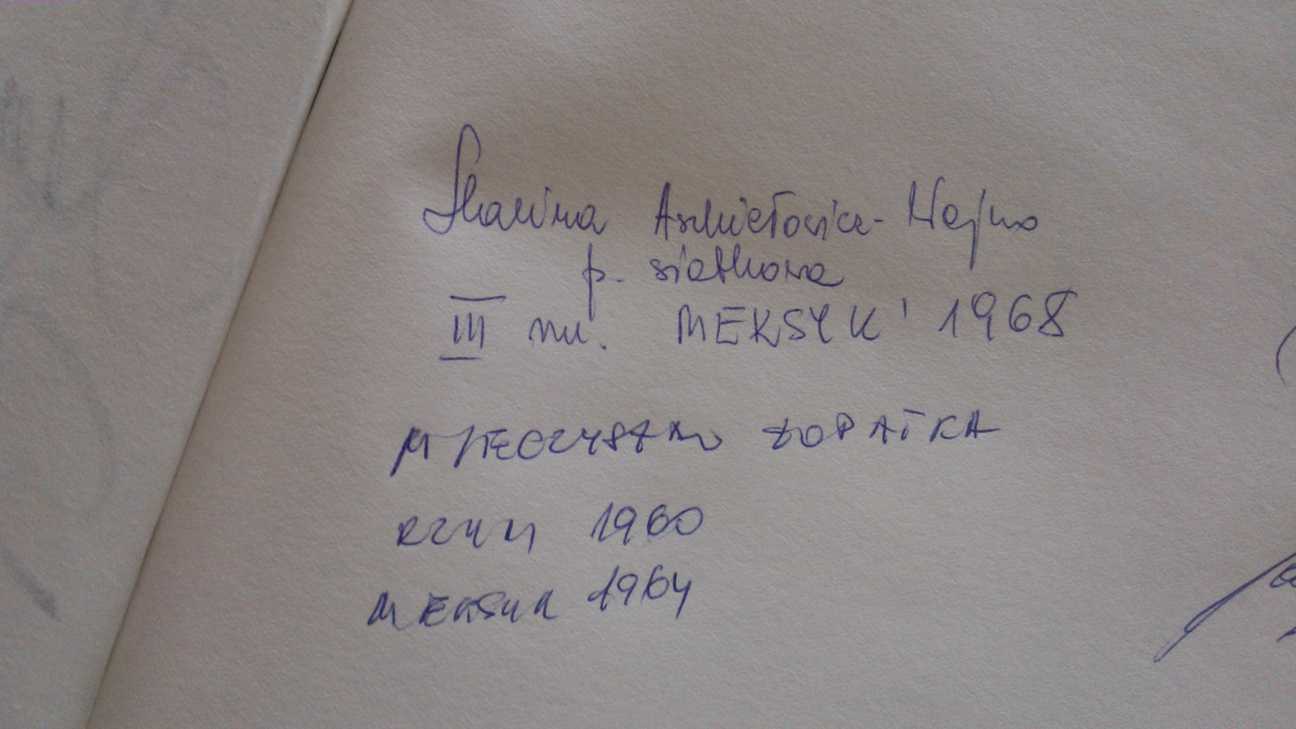 Halina Aszkiełowicz-Wojno
p. siatkowa
III m. MEKSYK' 1968
MIECZYSŁAW ŁOPATKA
RZYM 1960
MEKSYK 1964